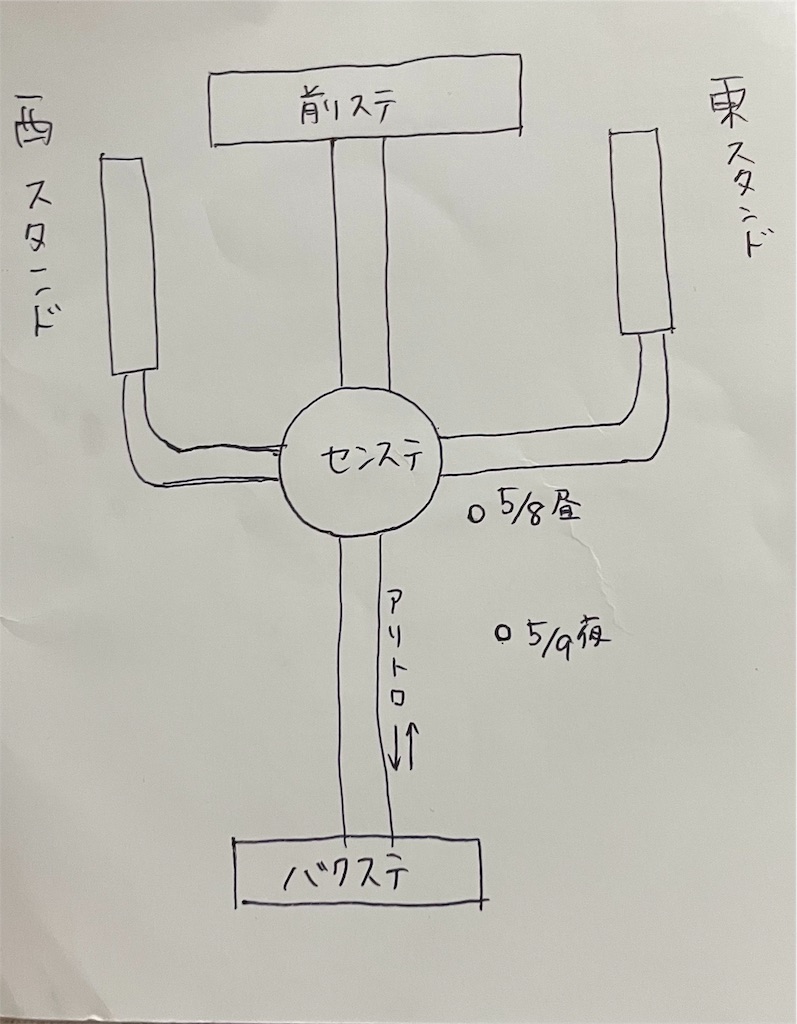 前リステ
西スタンド
東スタンド
センステ
5/8昼
5/9夜
アリトロ
バクステ